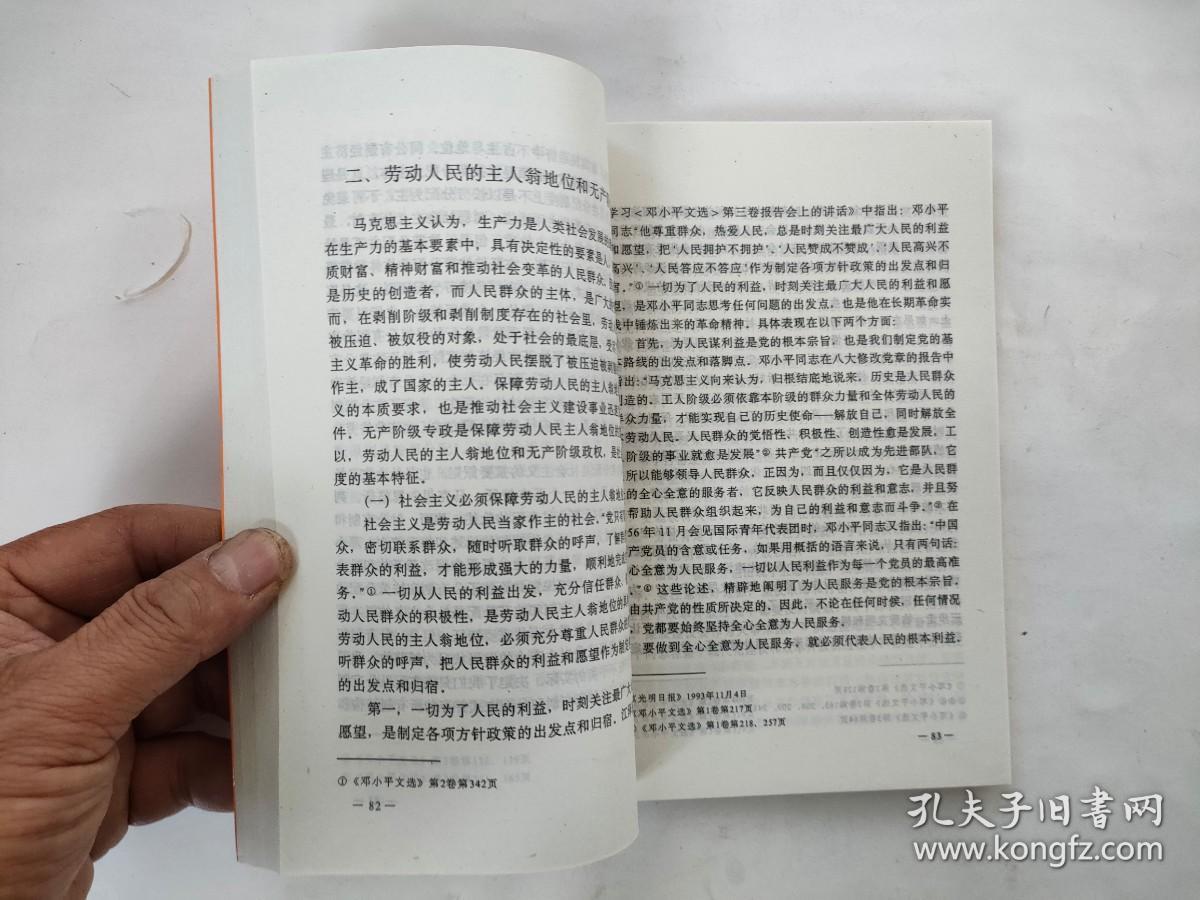 二、劳动人民的主人翁地位和无产
马克思主义认为，生产力是人类社会发展
在生产力的基本要素中，具有决定性的要素是人
质财富、精神财富和推动社会变革的人民群众
是历史的创造者，而人民群众的主体，是广大
而，在剥削阶级和剥削制度存在的社会里，劳动
被压迫、被奴役的对象，处于社会的最底层、受
主义革命的胜利，使劳动人民摆脱了被压迫被
作主，成了国家的主人。保障劳动人民的主人翁
义的本质要求，也是推动社会主义建设事业迅
件，无产阶级专政是保障劳动人民主人翁地位
以，劳动人民的主人翁地位和无产阶级政权，是
度的基本特征。
(一) 社会主义必须保障劳动人民的主人翁地
社会主义是劳动人民当家作主的社会，“党只有
众，密切联系群众，随时听取群众的呼声，了解
表群众的利益，才能形成强大的力量，顺利地完
务。”①一切从人民的利益出发，充分信任群众，
动人民群众的积极性，是劳动人民主人翁地位的
劳动人民的主人翁地位，必须充分尊重人民群众
听群众的呼声，把人民群众的利益和愿望作为制定
的出发点和归宿。
第一，一切为了人民的利益，时刻关注最广大
愿望，是制定各项方针政策的出发点和归宿，江
①《邓小平文选》第2卷第342页
— 82 —
学习<邓小平文选>第三卷报告会上的讲话》中指出：邓小平
同志“他尊重群众，热爱人民，总是时刻关注最广大人民的利益
和愿望，把‘人民拥护不拥护’、‘人民赞成不赞成’、‘人民高兴不
高兴’、‘人民答应不答应’作为制定各项方针政策的出发点和归
宿。”①一切为了人民的利益，时刻关注最广大人民的利益和愿
望，是邓小平同志思考任何问题的出发点，也是他在长期革命实
中锤炼出来的革命精神，具体表现在以下两个方面：
首先，为人民谋利益是党的根本宗旨，也是我们制定党的基
路线的出发点和落脚点。邓小平同志在八大修改党章的报告中
出：“马克思主义向来认为，归根结底地说来，历史是人民群众
创造的。工人阶级必须依靠本阶级的群众力量和全体劳动人民的
众力量，才能实现自己的历史使命——解放自己，同时解放全
劳动人民。人民群众的觉悟性、积极性、创造性愈是发展，工
阶级的事业就愈是发展”②共产党“之所以成为先进部队，它
所以能够领导人民群众，正因为，而且仅仅因为，它是人民群
的全心全意的服务者，它反映人民群众的利益和意志，并且努
帮助人民群众组织起来，为自己的利益和意志而斗争。”③在
56年11月会见国际青年代表团时，邓小平同志又指出：“中国
产党员的含意或任务，如果用概括的语言来说，只有两句话：
心全意为人民服务，一切以人民利益作为每一个党员的最高准
。”④这些论述，精辟地阐明了为人民服务是党的根本宗旨，
由共产党的性质所决定的，因此，不论在任何时候，任何情况
，党都要始终坚持全心全意为人民服务。
要做到全心全意为人民服务，就必须代表人民的根本利益。
《光明日报》1993年11月4日
《邓小平文选》第1卷第217页
《邓小平文选》第1卷第218、257页
— 83 —
孔夫子旧书网
www.kongfz.com